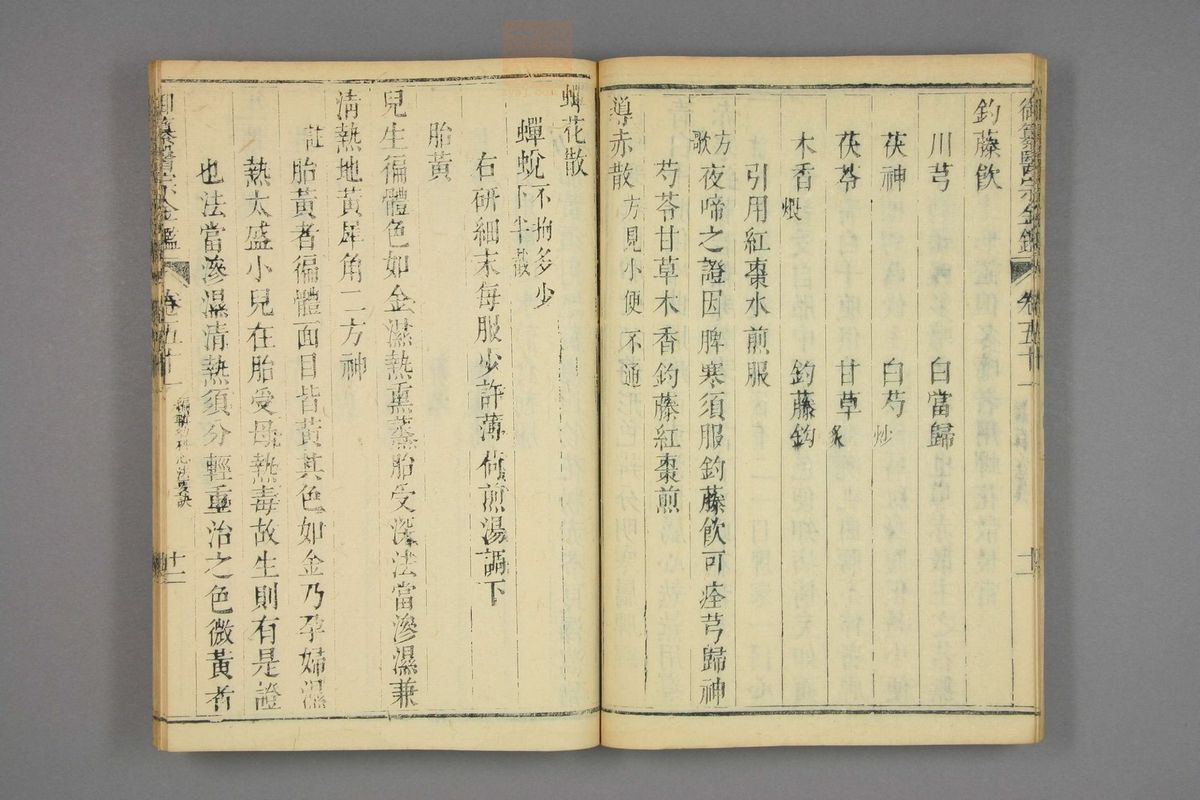 御纂醫宗金鑑 卷五十一 十一
釣藤飲
川芎 白當歸
茯神 白芍炒
茯苓 甘草炙
木香煨 釣藤鉤
引用紅棗水煎服
方歌 夜啼之證因脾寒須服釣藤飲可痊芎歸神
芍苓甘草木香釣藤紅棗煎
導赤散方見小便不通
蟬花散
蟬蛻不拘多少下半截
右研細末每服少許薄荷煎湯調下
胎黃
兒生徧體色如金濕熱熏蒸胎受深法當滲濕兼
清熱地黃犀角二方神
註 胎黃者徧體面目皆黃其色如金乃孕婦濕
熱太盛小兒在胎受母熱毒故生則有是證
也法當滲濕清熱須分輕重治之色微黃者
御纂醫宗金鑑 卷五十一 編輯幼科心法要訣 十二